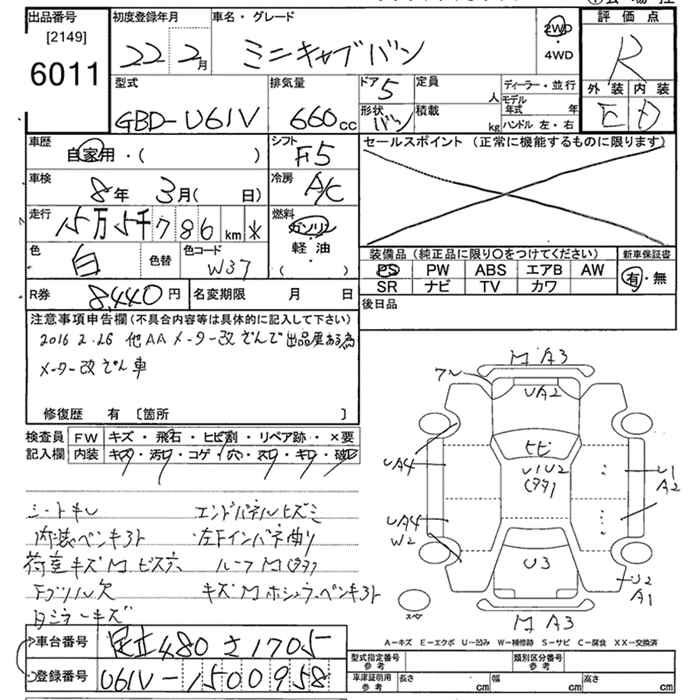 出品番号
[2149]
6011
初度登録年月
22 2月
車名・グレード
ミニキャブバン
2WD
・
4WD
評価点
R
外装 内装
E D
型式
GBD-U61V
排気量
660cc
ドア 5
形状 バン
定員
人
積載
kg
ディーラー・並行
モデル年式 年
ハンドル 左・右
車歴
自家用・( )
シフト
F5
セールスポイント (正常に機能するものに限ります)
車検
8年 3月( 日)
冷房
A/C
走行
15万5千786km *
燃料
ガソリン
・
軽・油
( )
色
白
色替
色コード
W37
装備品 (純正品に限り○をつけてください)
新車保証書
PS PW ABS エアB AW
SR ナビ TV カワ
有・無
R券 8,440円
名変期限 月 日
後日品
注意事項申告欄(不具合内容等は具体的に記入して下さい)
2016 2.26 他AA メーター改ざんで出品歴ある為
メーター改ざん車
修復歴 有 [箇所 ]
検査員
記入欄
FW キズ・飛石・ヒビ割・リペア跡・×要
内装 キズ・汚レ・コゲ・穴・スレ・キレ・破レ
シートキレ
エンドパネルヒズミ
内装ペンキ
左Fインパネ曲り
荷室キズM ビス穴
ルーフM
Fグリル欠
キズM
キズ
M A3
フ〜
UA2
ヒビ
U1U2
UA4
U1
A2
UA4
W2
U3
U2
A1
スペア
M A3
A－キズ E－エクボ U－凹み W－補修跡 S－サビ C－腐食 XX－交換済
車台番号
足立480さ1705
登録番号
U61V-1500958
型式指定番号
参考
類別区分番号
参考
車庫証明用
参考
長さ cm
幅 cm
高さ cm